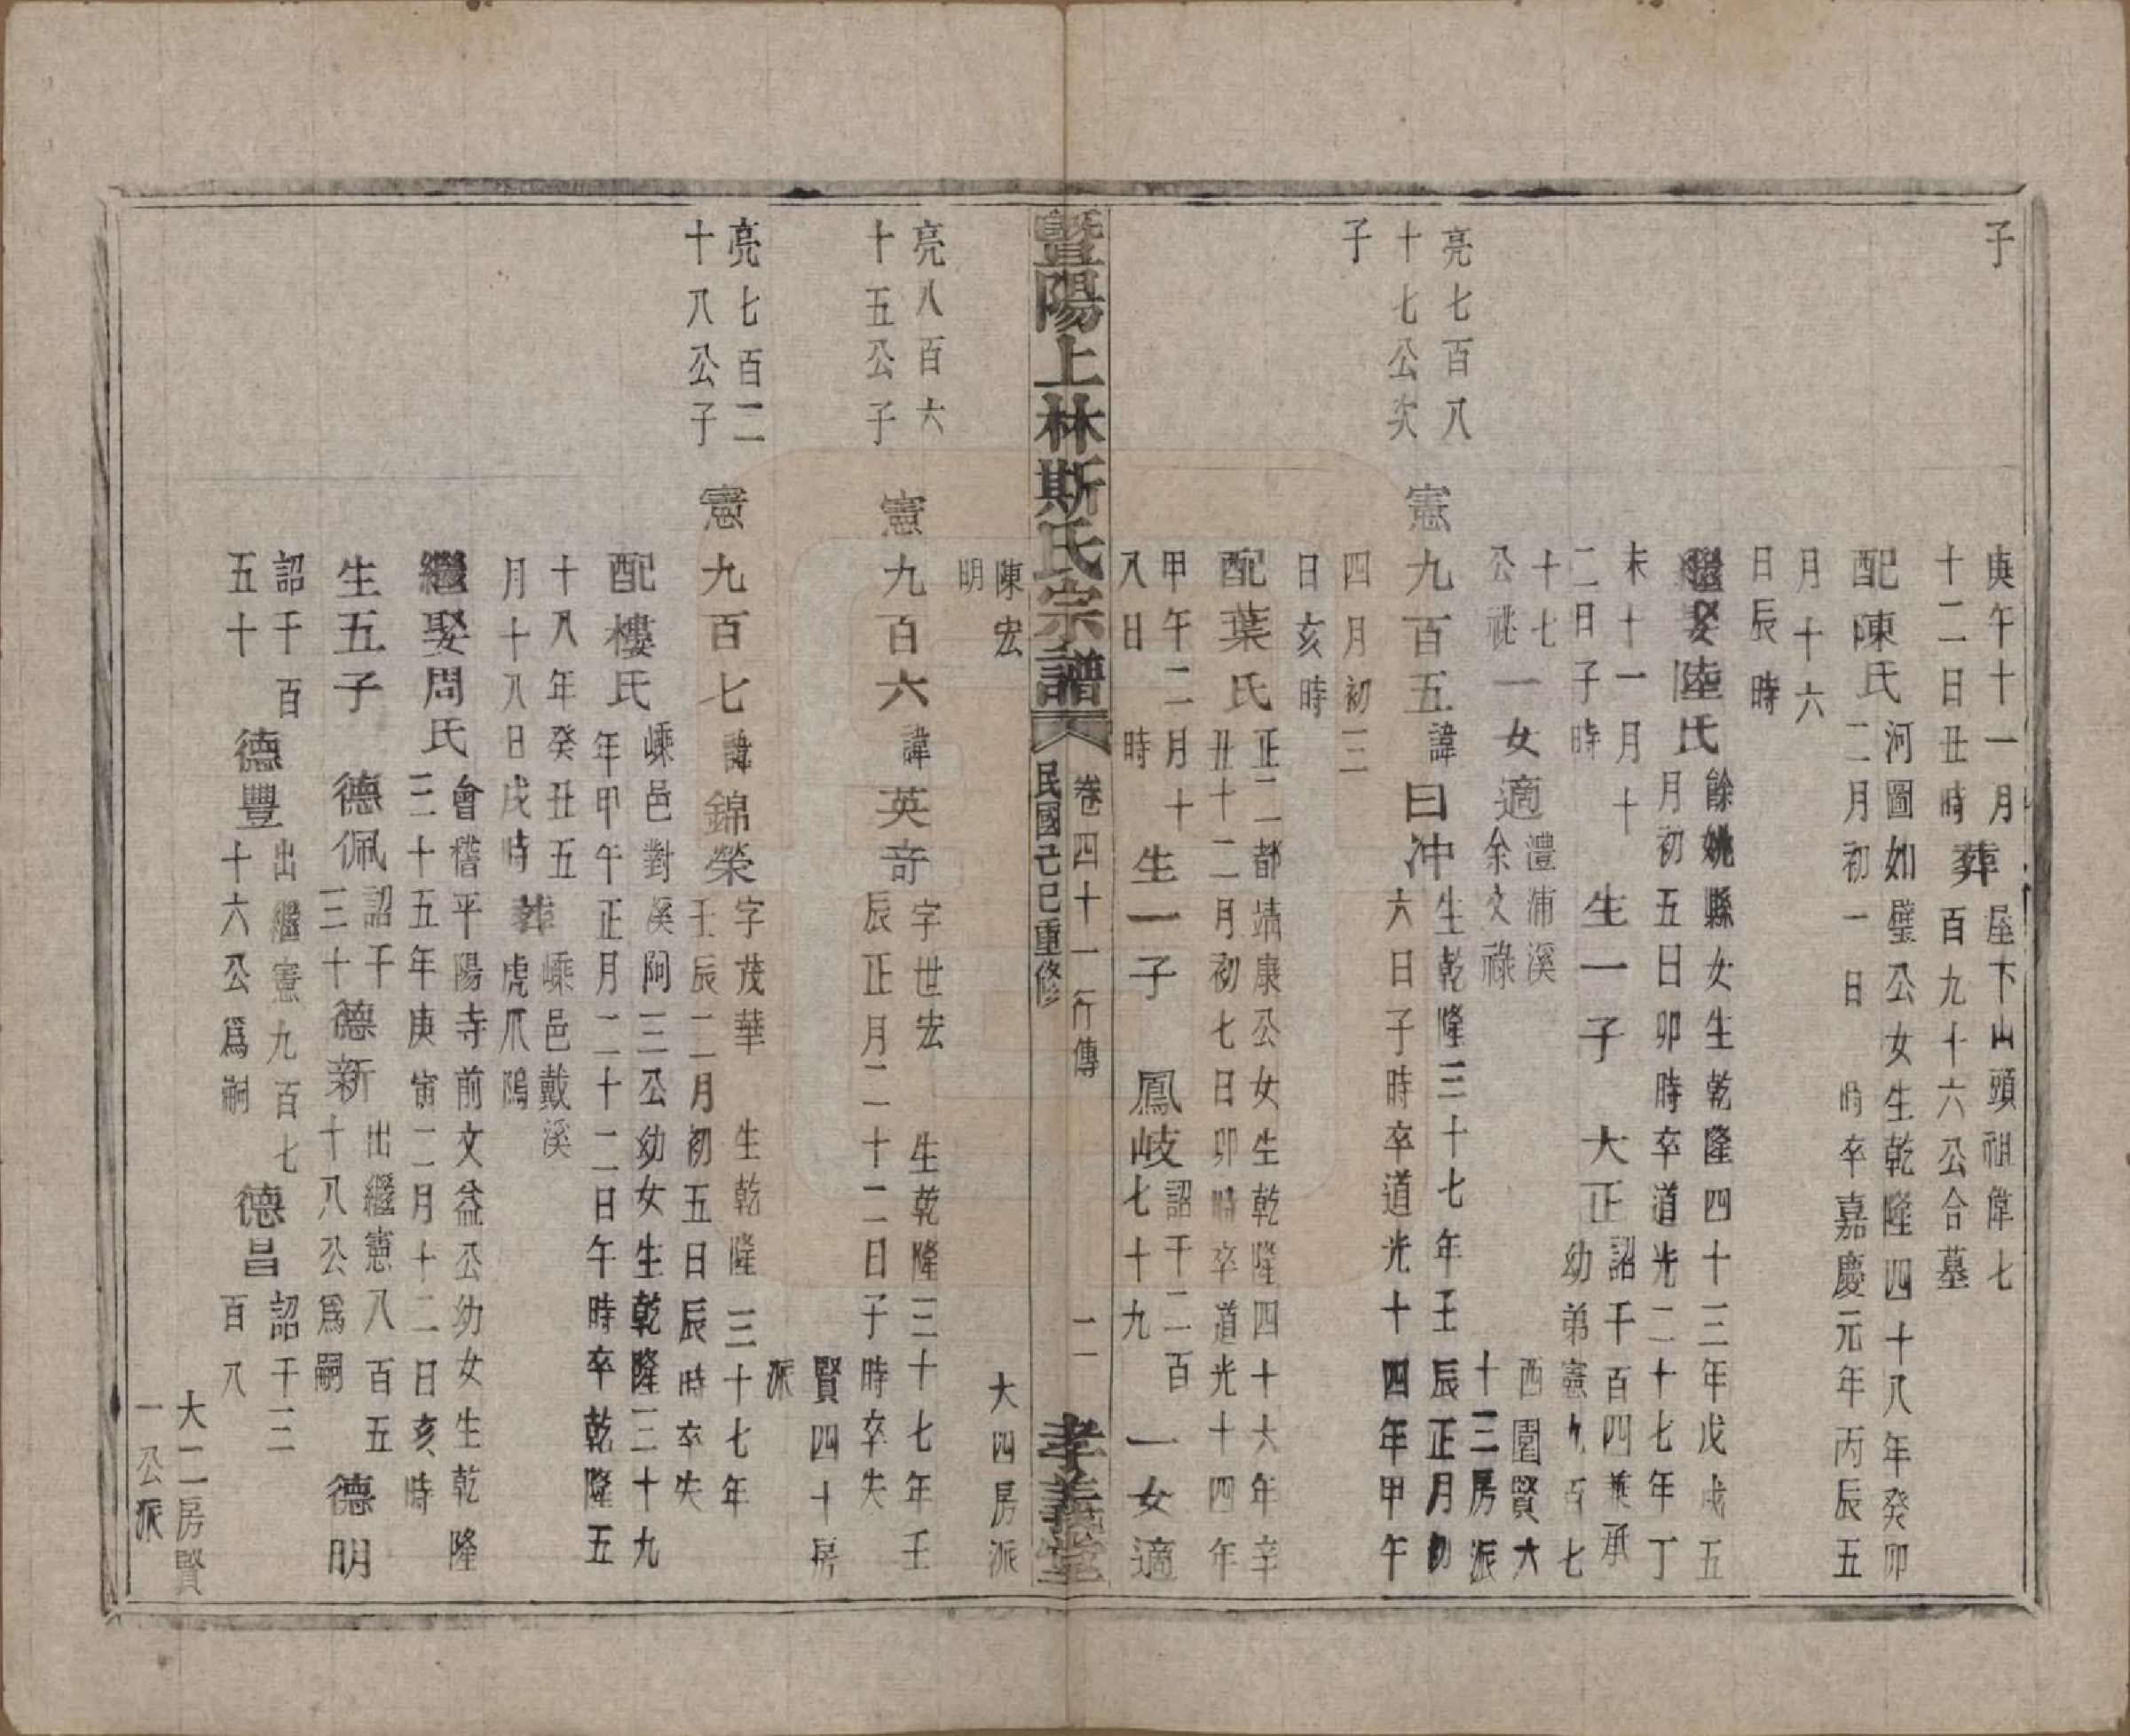 子
庚午十一月
十二日丑時
葬
屋下山頭祖偉七
百九十六公合墓
配陳氏
河圖如璧公女生乾隆四十八年癸卯
二月初一日　時卒嘉慶元年丙辰五
月十六
日辰時
繼娶陸氏
餘姚縣女生乾隆四十三年戊戌五
月初五日卯時卒道光二十七年丁
未十一月十
二日子時
生一子
大正
詔千百四兼承
幼弟憲九百七
十七
公祧
一女適
澧浦溪
余文祿
西園賢大
十三房派
亮七百八
十七公次
子
憲九百五
諱
曰冲
生乾隆三十七年壬辰正月初
六日子時卒道光十四年甲午
四月初三
日亥時
配葉氏
正二都靖康公女生乾隆四十六年辛
丑十二月初七日卯時卒道光十四年
甲午二月十
八日　時
生一子
鳳岐
詔千二百
七十九
一女適
暨陽上林斯氏宗譜
卷四十一
行傳
民國己巳重修
二
孝義堂
陳宏
明
大四房派
亮八百六
十五公子
憲九百六
諱
英奇
字世宏　生乾隆三十七年壬
辰正月二十二日子時卒失
賢四十房
派
亮七百二
十八公子
憲九百七
諱
錦榮
字茂華　生乾隆三十七年
壬辰二月初五日辰時卒失
配樓氏
嵊邑對溪阿三公幼女生乾隆三十九
年甲午正月二十二日午時卒乾隆五
十八年癸丑五
月十八日戌時
葬
嵊邑戴溪
虎爪塢
繼娶周氏
會稽平陽寺前文益公幼女生乾隆
三十五年庚寅二月十二日亥時
生五子
德佩
詔千
三十
德新
出繼憲八百五
十八公爲嗣
德明
詔千百
五十
德豐
出繼憲九百七
十六公爲嗣
德昌
詔千三
百八
大二房賢
一公派